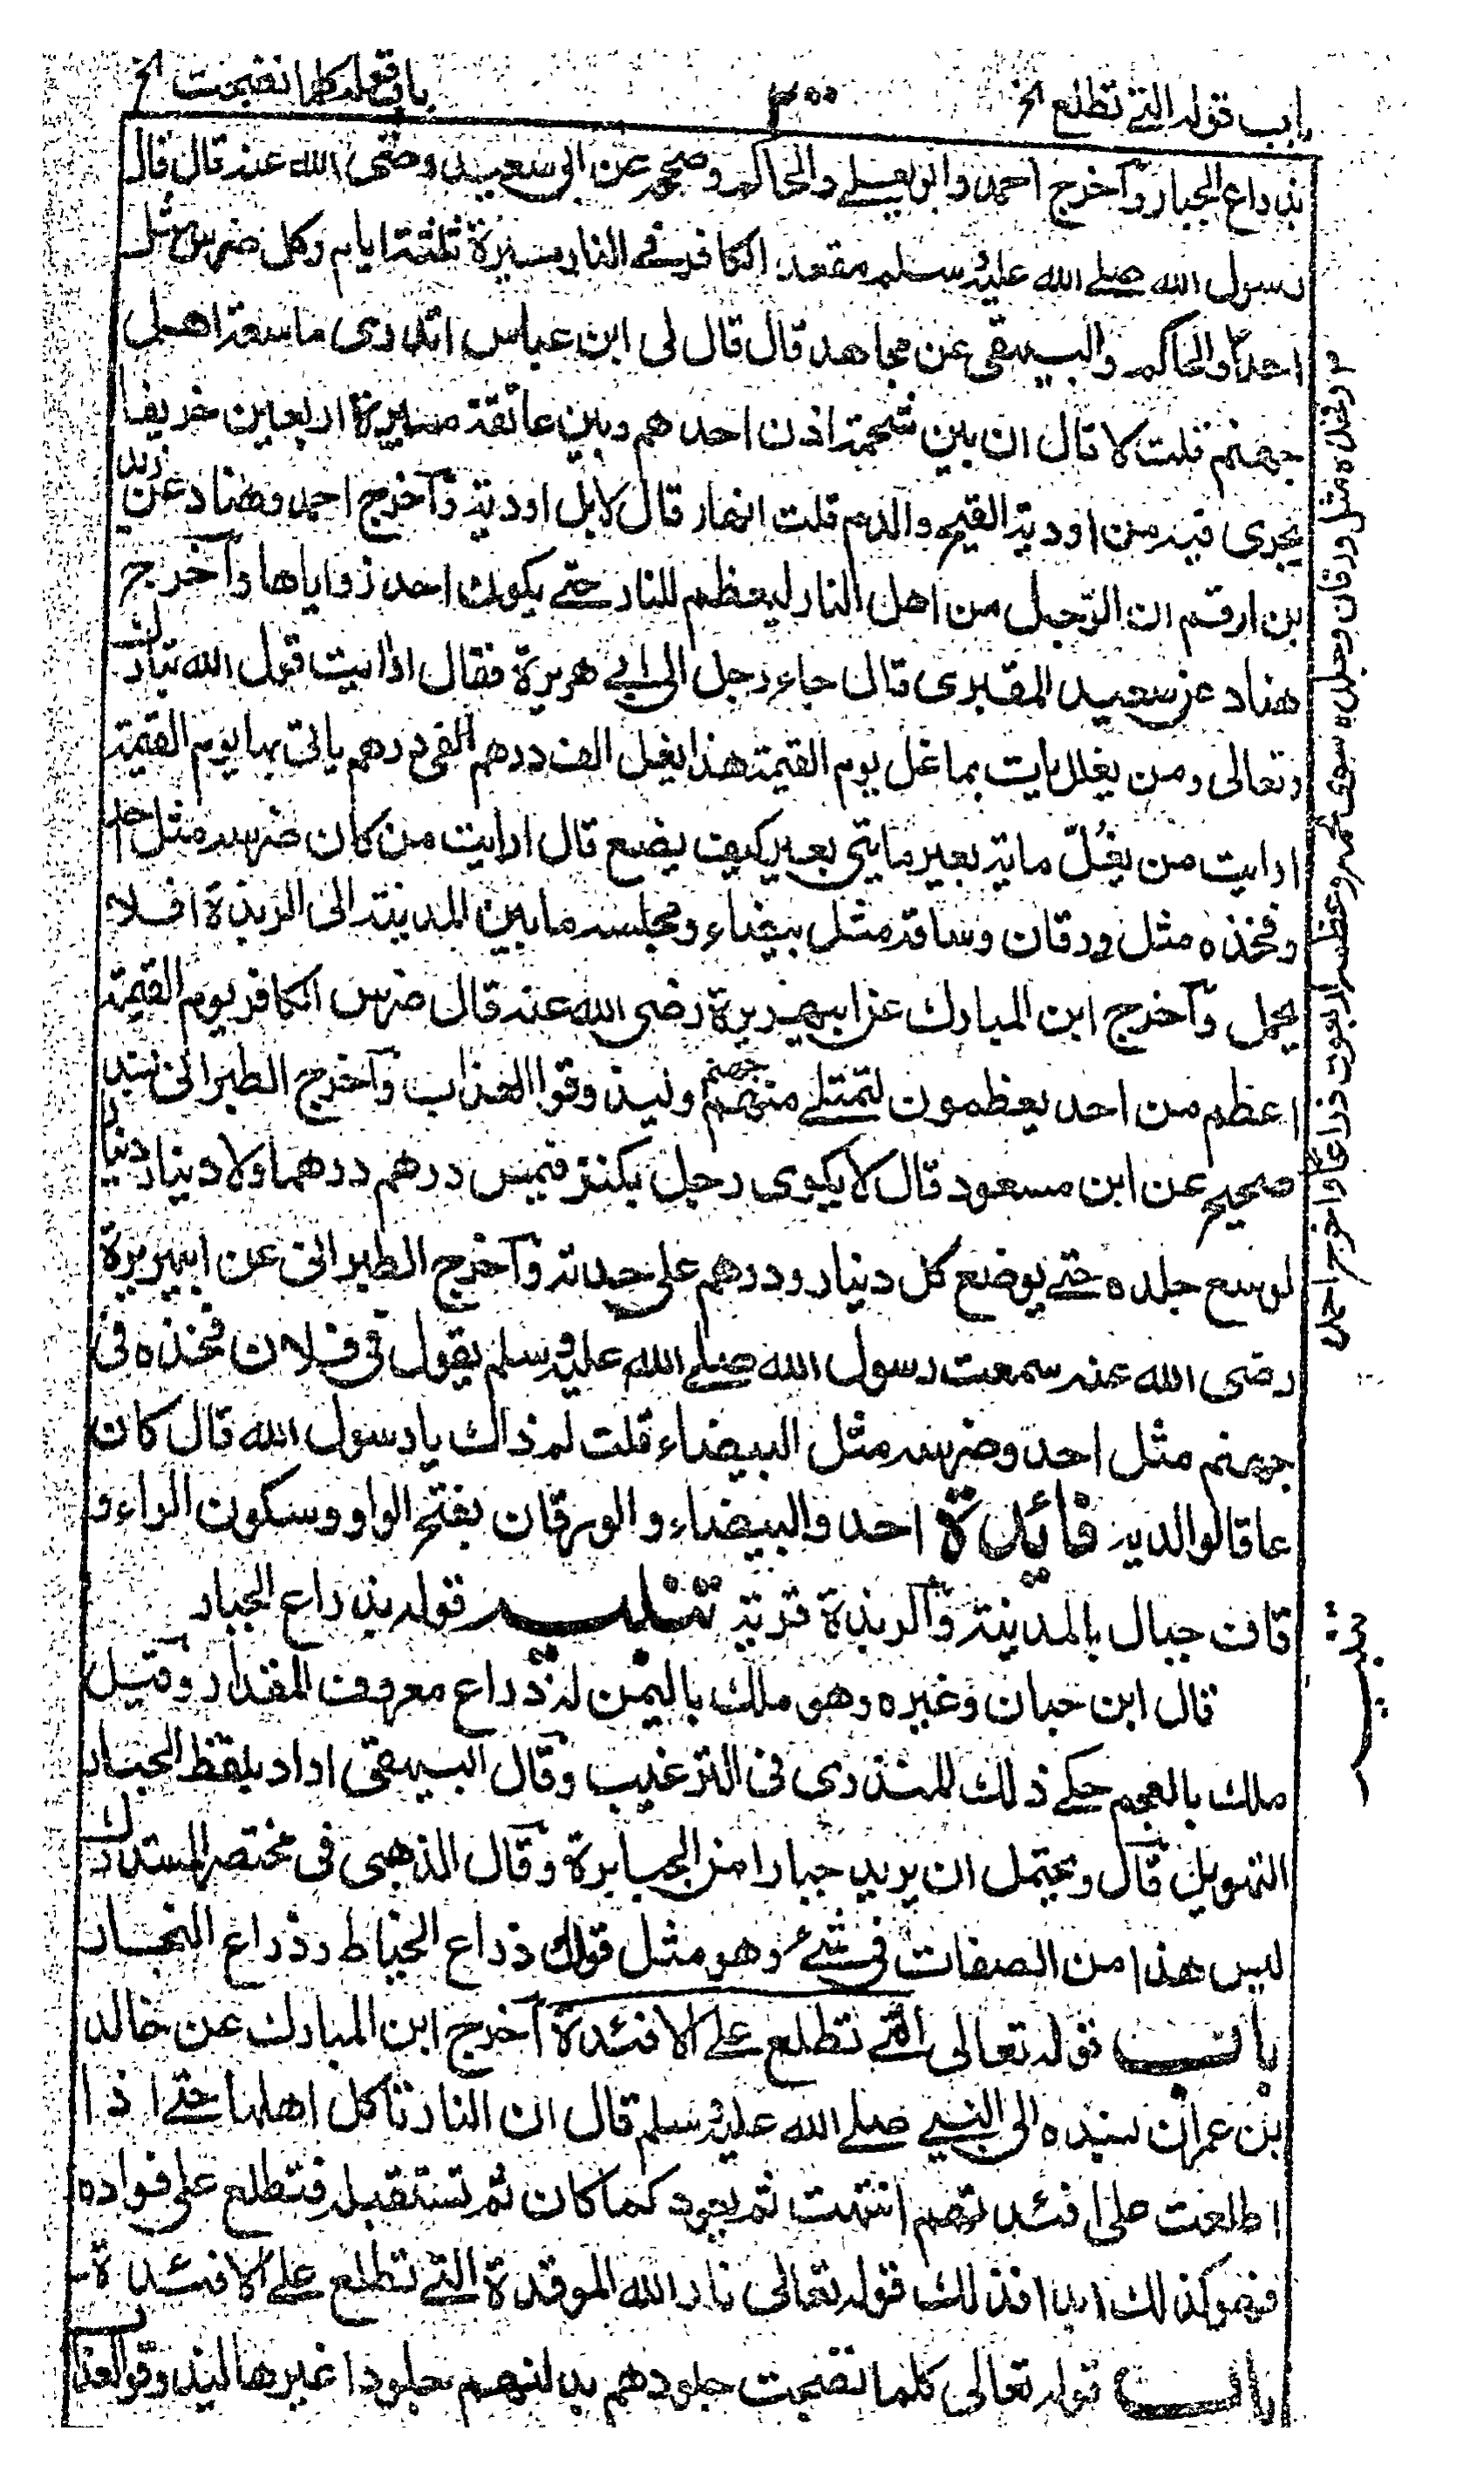 باب قوله التی تطلع الخ
۳۰۰
باب قوله كلما نضجت الخ
بذراع الجبار وآخرج احمد وابو يعلے والحاكم وصححه عن ابی سعید رضی الله عنه قال قال
رسول الله صلے الله عليه وسلم مقعد الكافر فے النار مسيرة ثلثة ايام وكل ضرس مثل
احد وآلحاكم والبيهقی عن مجاهد قال قال لی ابن عباس اتدری ما سعة اهل
جهنم قلت لا قال ان بين شحمة اذن احدهم وبين عاتقه مسيرة اربعين خريفا
يجری فيه من اودية القيح والدم قلت انهار قال لا بل اودية وآخرج احمد وهناد عن زيد
بن ارقم ان الرّجل من اهل النار ليعظم للنار حتے يكون احد زواياها وآخرج
هناد عن سعيد المقبری قال جاء رجل الی ابے هريرة فقال ارايت قول الله تبارك
وتعالی ومن يغلل يات بما غل يوم القيمة هذا يغل الف درهم الفی درهم ياتی بها يوم القيمة
ارايت من يغُلّ ماية بعير مايتی بعير كيف يضع قال ارايت من كان ضرسه مثل احد
وفخذه مثل ورقان وساقه مثل بيضاء ومجلسه ما بين المدينة الی الربذة افلا
يحمل وآخرج ابن المبارك عن ابيهريرة رضی الله عنه قال ضرس الكافر يوم القيمة
اعظم من احد يعظمون لتمتلے منهم جهنم وليذوقوا العذاب وآخرج الطبرانی بسند
صحيح عن ابن مسعود قال لا يكوی رجل يكنز فيمس درهم درهما ولا دينار دينارا
يوسع جلده حتے يوضع كل دينار ودرهم علی حدته وآخرج الطبرانی عن ابيهريرة
رضی الله عنه سمعت رسول الله صلے الله عليه وسلم يقول فی فلان فخذه فی
جهنم مثل احد وضرسه مثل البيضاء قلت لم ذاك يا رسول الله قال كان
عاقا لوالديه فائدة احد والبيضاء والورقان بفتح الواو وسكون الراء و
قاف جبال بالمدينة وآلربذة قرية تنبيه قوله بذراع الجبار
قال ابن حبان وغيره وهو ملك باليمن له ذراع معروف المقدار وقيل
ملك بالعجم حكے ذلك المنذری فی الترغيب وقال البيهقی اراد بلفظ الجبار
التهويل قال ويحتمل ان يريد جبارا من الجبابرة وقال الذهبی فی مختصر المستدرك
ليس هذا من الصفات فی شیء وهو مثل قولك ذراع الخياط وذراع النجار
باب قوله تعالی التے تطلع علے الافئدة آخرج ابن المبارك عن خالد
بن عمران بسنده الی النبے صلے الله عليه وسلم قال ان النار تاكل اهلها حتے اذا
اطلعت علی افئدتهم انتهت ثم يعود كما كان ثم تستقبله فتطلع علی فواده
فهو كذلك ابدا فذلك قوله تعالی نار الله الموقدة التے تطلع علے الافئدة
باب قوله تعالی كلما نضجت جلودهم بدلنهم جلودا غيرها ليذوقوا العذاب
وفخذه مثل ورقان وجلده سوی لحمه وعظمه اربعون ذراعا وآخرج احمد